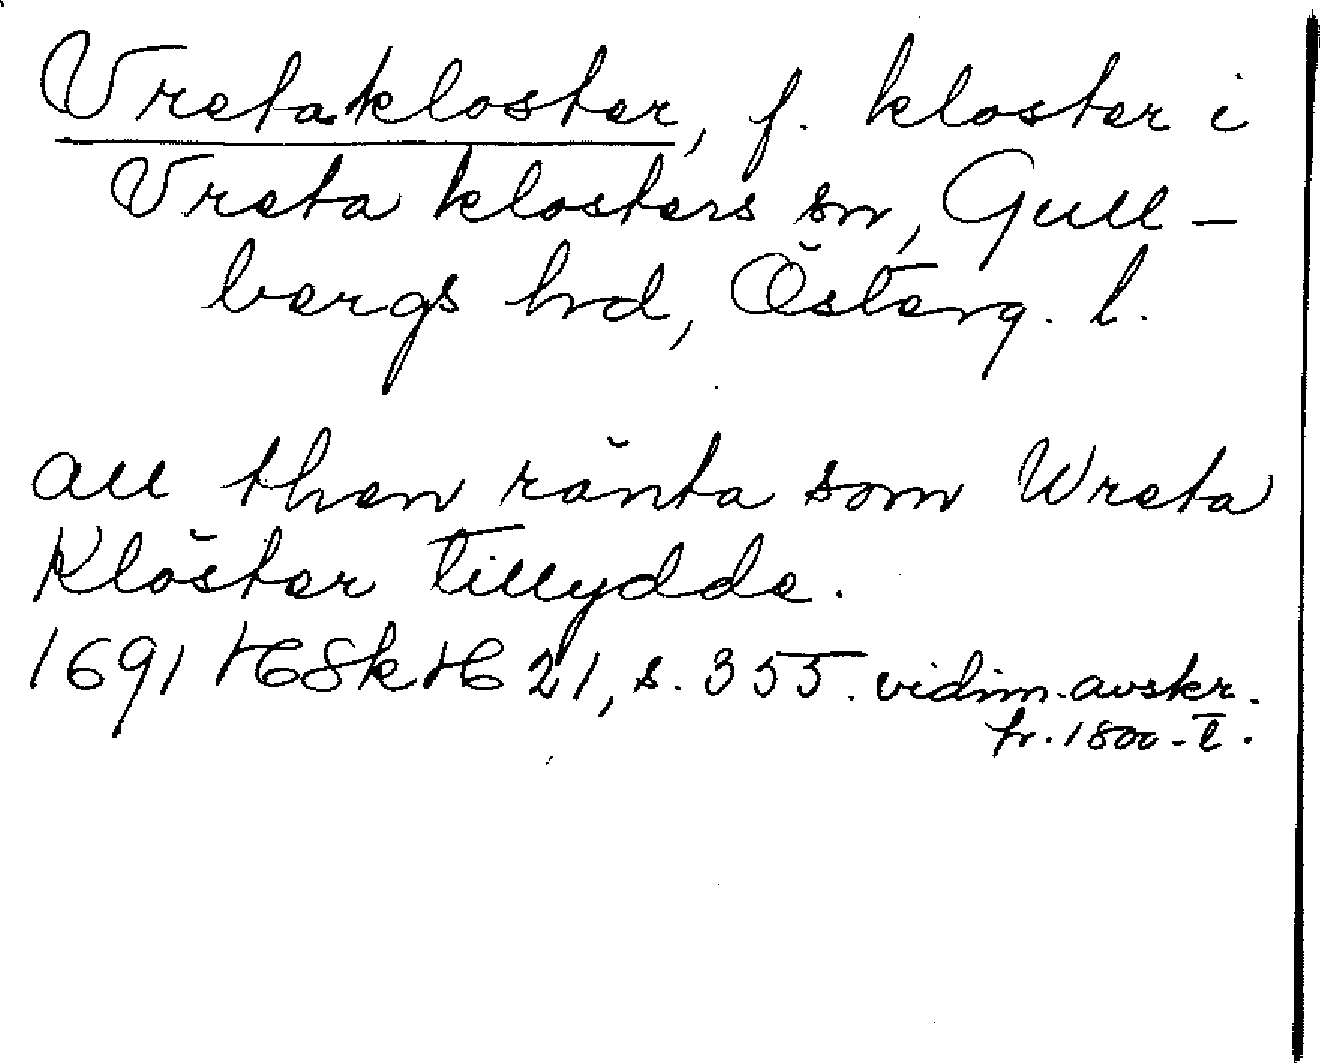 Vreta kloster, f. kloster i
Vreta klosters sn, Gull-
bergs hd, Österg. l.
all then ränta som Wreta
Klöster tillydde.
1691 HSkH 21, s. 355. vidim. avskr.
fr. 1800-t.